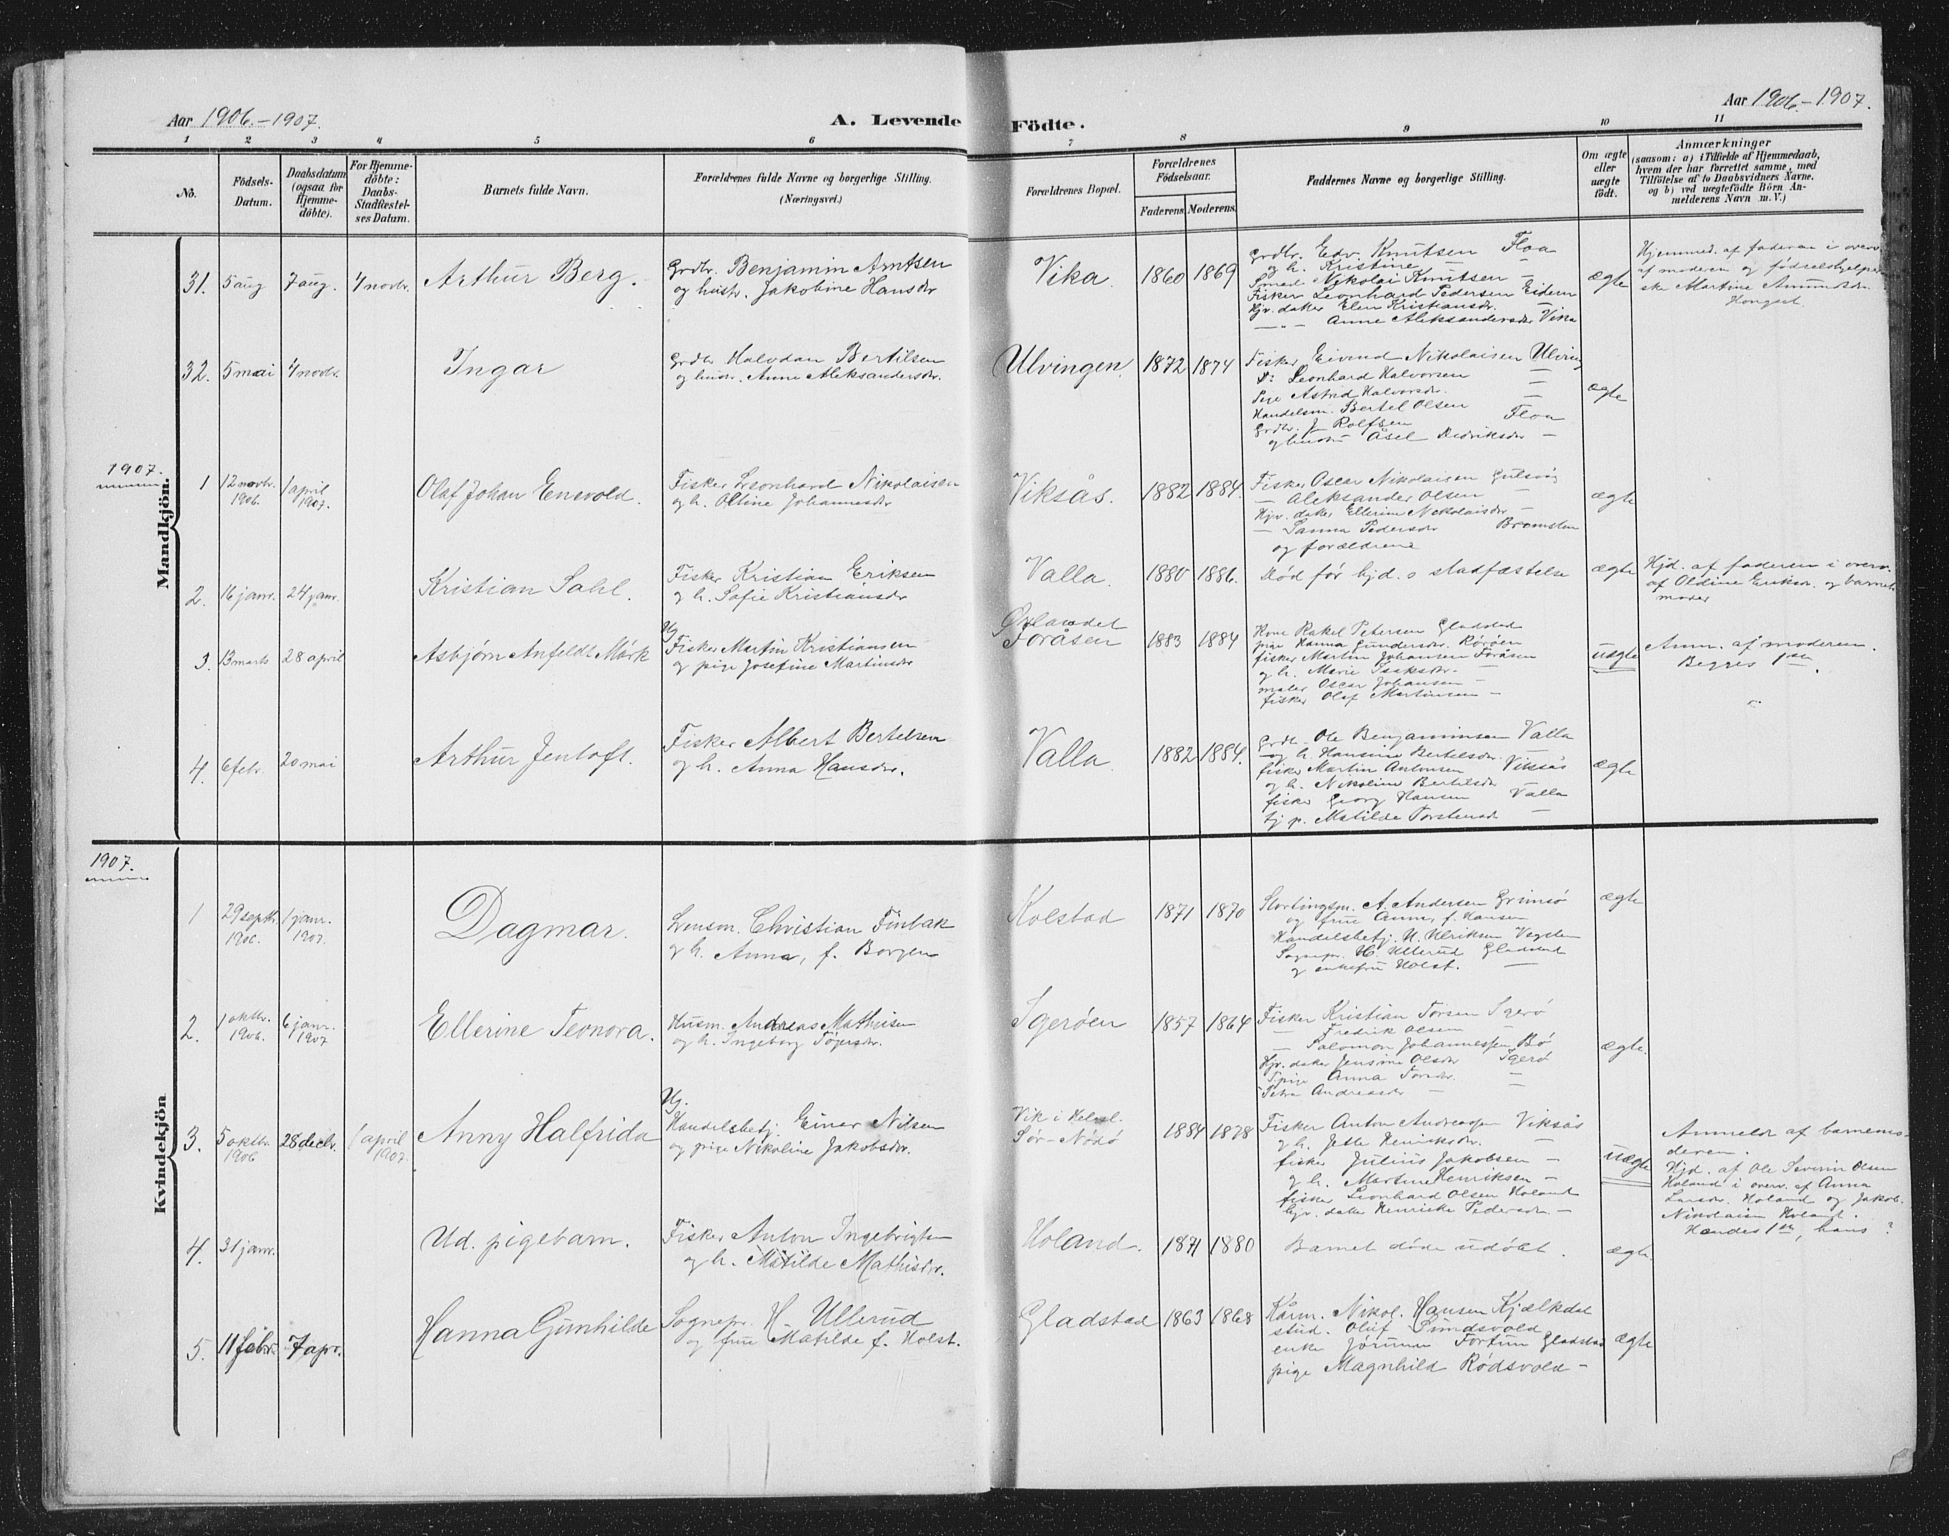 Aar 1906.-1907.
A. Levende Födte.
Aar 1906-1907.
1 2 3 4 5 6 7 8 9 10 11
No.
Födsels-Datum.
Daabsdatum (ogsaa for Hjemmedöbte).
For Hjemmedöbte: Daabs-Stadfæstelses Datum.
Barnets fulde Navn.
Forældrenes fulde Navne og borgerlige Stilling. (Næringsvei.)
Forældrenes Bopæl.
Forældrenes Födselsaar.
Faderens. Moderens.
Faddernes Navne og borgerlige Stilling.
Om ægte eller uægte födt.
Anmærkninger
(saasom: a) i Tilfælde af Hjemmedaab, hvem der har forrettet samme, med Tilföielse af to Daabsvidners Navne, og b) ved uægtefödte Börn Anmelderens Navn m. V.)
Mandkjön.
31. 5 aug 7 aug. 4 novbr. Arthur Berg.
Grdbr. Benjamin Arntsen
og hustr. Jakobine Hansdr
Vika. 1860 1869
Grdbr. Edv. Knutsen Floa
og h. Kristine —
Nikolai Knutsen —
Fisker Leonhard Pedersen Eidem
Hjv. datter Elen Kristiansdr.
— Anne Aleksandersdr Vika
ægte
Hjemmed. af faderen i overv.
af moderen og fødselshjelper
ske Martine Amundsdr.
32. 5 mai 4 novbr. Ingar
Grdbr Halvdan Bertilsen
og hustr. Anne Aleksandersdr.
Ulvingen 1872 1874
Fisker Eivend Nikolaisen Ulving
D: Leonhard Halvorsen —
Pige Astrid Halvorsdr. —
Handelsm. Bertel Olsen
Grdbr. J. Rolfsen Floa
og hustr Åsel Dedriksdr —
ægte
1907.
1 12 novbr. 1906. 1 april 1907. Olaf Johan Ensvold.
Fisker Leonhard Nikolaisen
og h. Oltine Johannesdr
Viksås. 1882 1884.
Fisker Oscar Nikolaisen Gulsvåg
— Aleksander Olsen —
Hjv. datter Ellerine Nekolaisdr —
— Sanna Pedersdr Bremsten
og forældrene
ægte
2. 16 janr. 24 janr. Kristian Sahl.
Fisker Kristian Eriksen
og h. Sofie Kristiansdr
Valla. 1880 1886.
Død før hjd. s stadfæstelse
ægte
Hjd. af faderen i overv.
af Oldine Eriksdr. og barnets
moder
3. 13 marts 28 april Asbjørn Anfeldt Mörk
Ug.
Fisker Martin Kristiansen
og pige Josefine Martinsdr
Øylandet
Foråsen 1883 1884
Kone Rakel Petersen Gladstad
pige Hanna Gundersdr. Rörøen
fisker Martin Johansen Foråsen
og h. Marie Isaksdr. —
maler Oscar Johansen —
fisker Olaf Martinsen —
uægte
Anm. af moderen.
Begges 1ste.
4. 6 febr. 20 mai Arthur Jentoft.
Fisker Albert Bertelsen
og h. Anna Hansdr.
Valla. 1882 1884.
Grdb. Ole Benjaminsen Valla
og h. Hansine Bertelsdr.
fisker Martin Antonsen Viksås
og h. Nikoline Bertilsdr
fisker Georg Hansen Valla
tj p. Matilde Torstensdr —
ægte
1907.
Kvindekjön
1 29 septbr. 1906. 1 janr. 1907. Dagmar.
Lensm. Christian Finbak
og h. Anna, f. Borgen
Kolstad 1871 1870
Stortingsm. A. Andersen Grimsö
og frue Anna, f. Hansen
Handelsbetj. U. Ulriksen Vegsten
Sognepr. H. Ullerud Gladstad
og enkefru Holst. —
ægte
2. 1 oktbr. 1906. 6 janr. 1907 Ellerine Teonora.
Husm. Andreas Mathisen
og h. Ingeborg Töjersdr.
Igerøen 1857 1864
Fisker Kristian Torsen Igerö
— Fredrik Olsen —
— Salomon Johannessen Bö
Hjv. datter Jensine Olsdr Igerö
T.pige Anna Torsdr. —
Petra Andreasdr —
ægte.
3. 5 oktbr. 1906 28 decbr. 1 april 1907. Anny Halfrida
Ug.
Handelsbetj. Einar Nilsen
og pige Nikoline Jakobsdr.
Vik i Helgel.
Sör-Nödö 1884 1878
Fisker Anton Andreassen Viksås
og h. Jette Henriksdr. —
fisker Julius Jakobsen —
og h. Martine Henriksen —
fisker Leonhard Olsen Holand
hjv. datter Henrikke Pedersdr —
uægte
Anmeldt af barnemo-
deren.
Hjd. af Ole Severin Olsen
Holand i overv. af Anna
Larsdr. Holand og Jakob
Nikolaisen Holand.
Hændes 1ste, hans ?
4. 31 janr. Ud. pigebarn.
Fisker Anton Ingebrigtsen
og h. Matilde Mathisdr.
Holand. 1871 1880
Barnet døde udöbt.
ægte
5. 11 febr. 7 apr. Hanna Gunhilde
Sognepr. H. Ullerud
og frue Matilde f. Holst.
Gladstad 1863 1868
Kårm. Nikol. Hansen Kjælkdal
stud. Oluf Sundsvold
enke Jörumn Fortun Gladstad
pige Magnhild Rödsvold —
ægte